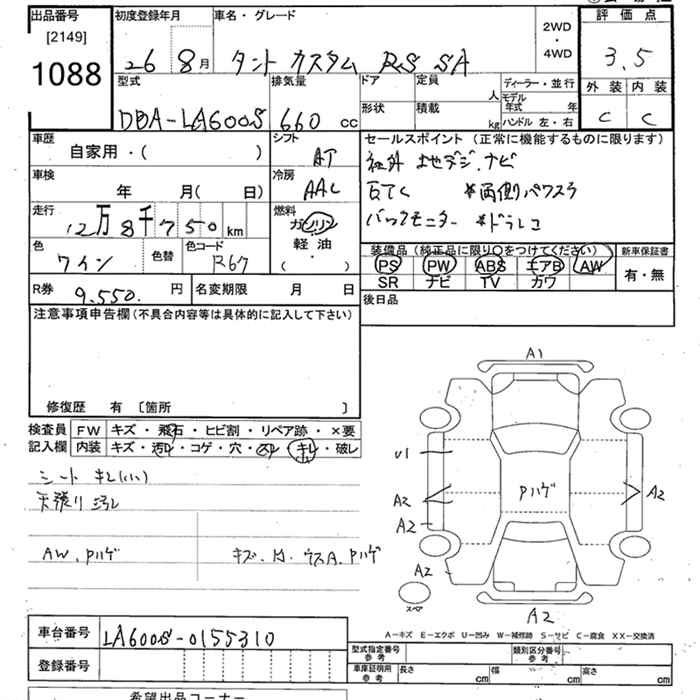 出品番号 初度登録年月 車名・グレード
[2149]
1088
26 8月 タント カスタム RS SA
2WD
・
4WD
評価点
3.5
外装 内装
C C
型式 排気量 ドア 定員 ディーラー・並行
人 モデル年式 年
形状 積載
DBA-LA600S 660cc kg ハンドル 左・右
車歴 シフト セールスポイント(正常に機能するものに限ります)
自家用・( ) AT
社外 地デジ.ナビ
車検 冷房
年 月( 日) AAC
両側パワスラ
走行 燃料
12万8千750km ガソリン
バックモニター *ドラレコ
軽油
( ・ )
色 色替 色コード
ワイン R67
装備品(純正品に限り○をつけてください) 新車保証書
PS PW ABS エアB AW 有・無
SR ナビ TV カワ
R券 9.550.円 名変期限 月 日
後日品
注意事項申告欄(不具合内容等は具体的に記入して下さい)
修復歴 有 〔箇所 〕
検査員 FW キズ・飛石・ヒビ割・リペア跡・×要
記入欄 内装 キズ・汚れ・コゲ・穴・スレ・キレ・破レ
シート キレ(いい)
天張り 汚れ
AW.Pハゲ キズ.凹.ウスA.Pハゲ
A1
U1
Pハゲ
A2 A2
A2
A2
スペア
A2
A-キズ E-エクボ U-凹み W-補修跡 S-サビ C-腐食 XX-交換済
車台番号 LA600S-0155310
登録番号
型式指定番号 参考 類別区分番号 参考
車庫証明用 参考 長さ cm 幅 cm 高さ cm
希望出品コーナー